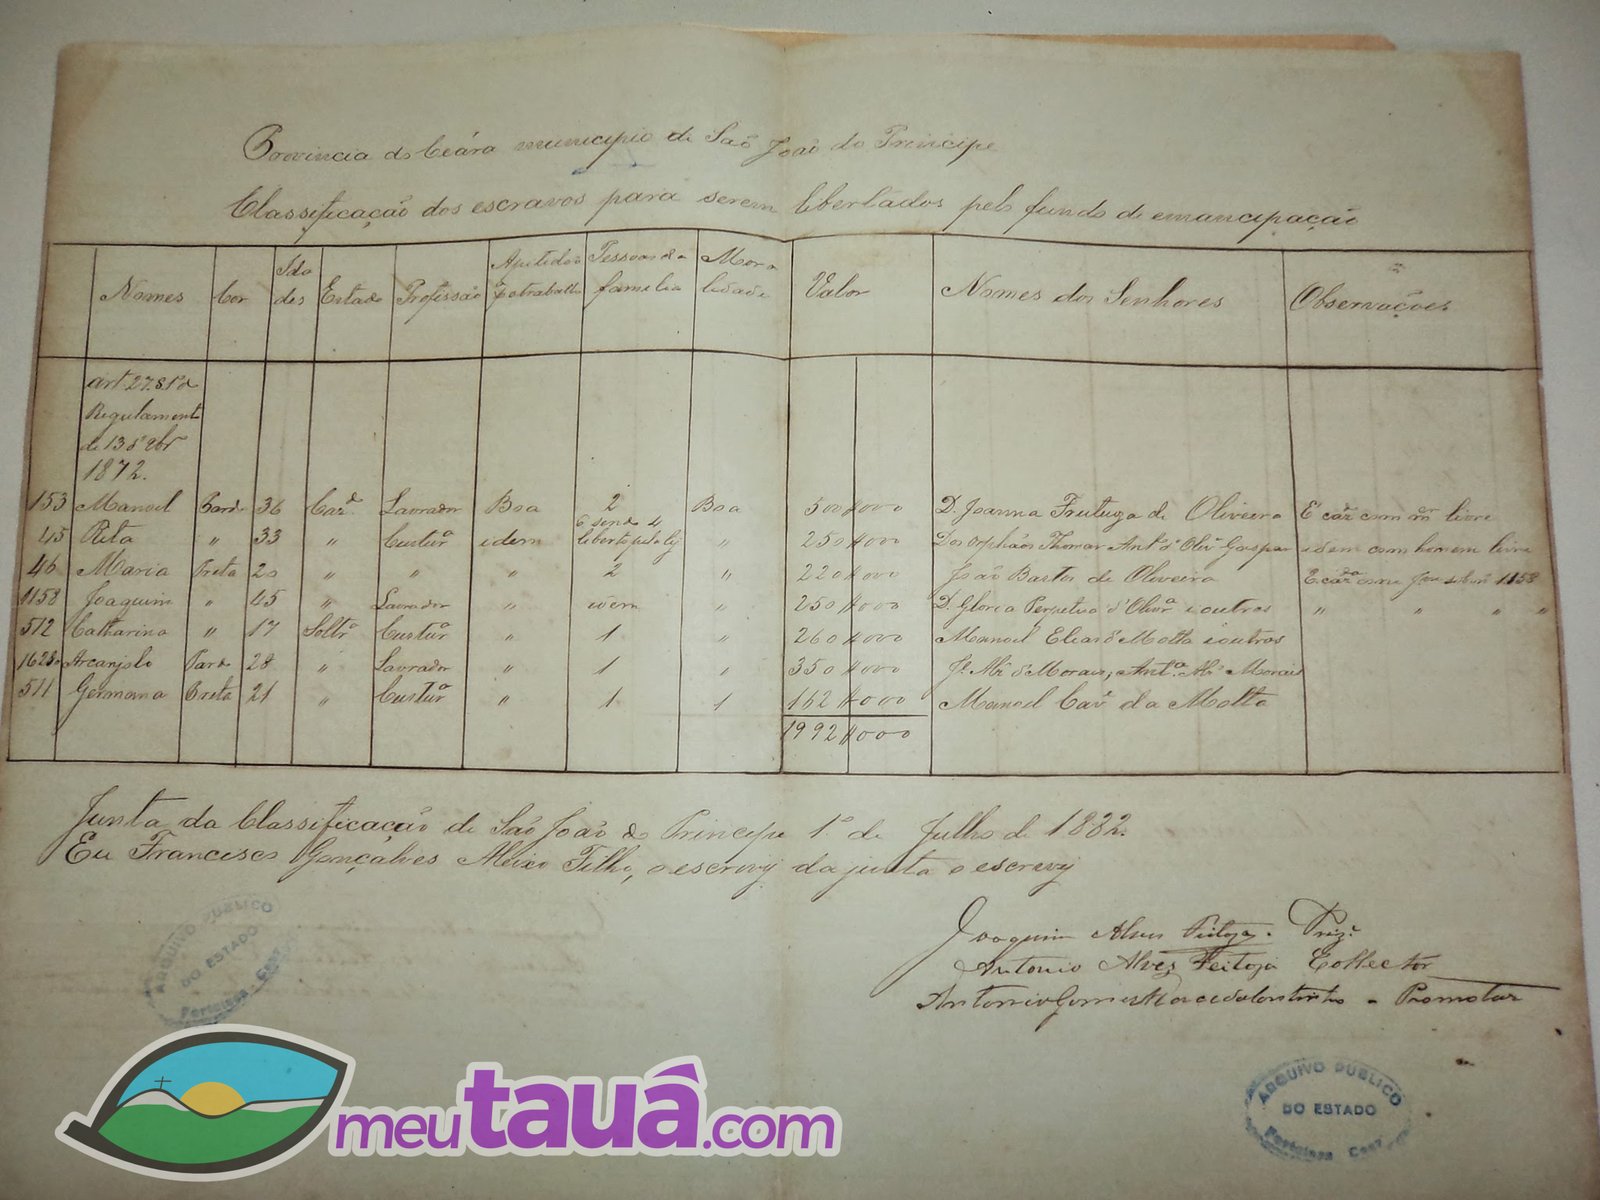 Provincia do Ceára municipio de São João do Principe
Classificação dos escravos para serem libertados pelo fundo de emancipação
Nomes Cor Ida des Estado Profissão Aptidão p.a trabalho Pessoas da familia Mora lidade Valor Nomes dos Senhores Observações
art 27 § 1º do
Regulament
de 13 9br
1872.
153 Manoel Pardo 36 Caz.d Lavrador Boa 2 Boa 500 000 D. Joanna de Oliveira E caz com livre
45 Rita " 33 " Custur.a idem 6 sendo 4 liberto pela lej " 250 000 Dos Orphãos Thomaz Ant.o d'Oliv.a Gaspar idem com homem livre
46 Maria Preta 20 " " " 2 " 220 000 João Bastos de Oliveira E caz.da 1158
1158 Joaquim " 45 " Lavrador " idem " 250 000 D. Gloria Perpetua d'Oliv.a e outros " " " "
512 Catharina " 17 Soltr.a Custur.a " 1 " 260 000 Manoel Motta e outros
1628 Arcanjelo Pardo 28 " Lavrador " 1 " 350 000 J.e d'Moraes, Ant.a Morais
511 Germana Preta 21 " Custur.a " 1 " 162 000 Manoel Cav.e da Motta
1992 000
Junta da Classificação de São João do Principe 1º de Julho de 1882.
Eu Francisco Gonçalves Aleixo Filho, escrivj da junta o escrevj
Joaquim Alves Feitoza
Antonio Alves Feitoza Collector
Antonio Gomes - Promotor
ARQUIVO PUBLICO
DO ESTADO
Fortaleza - Ceará
ARQUIVO PUBLICO
DO ESTADO
Fortaleza Ceará
meutauá.com